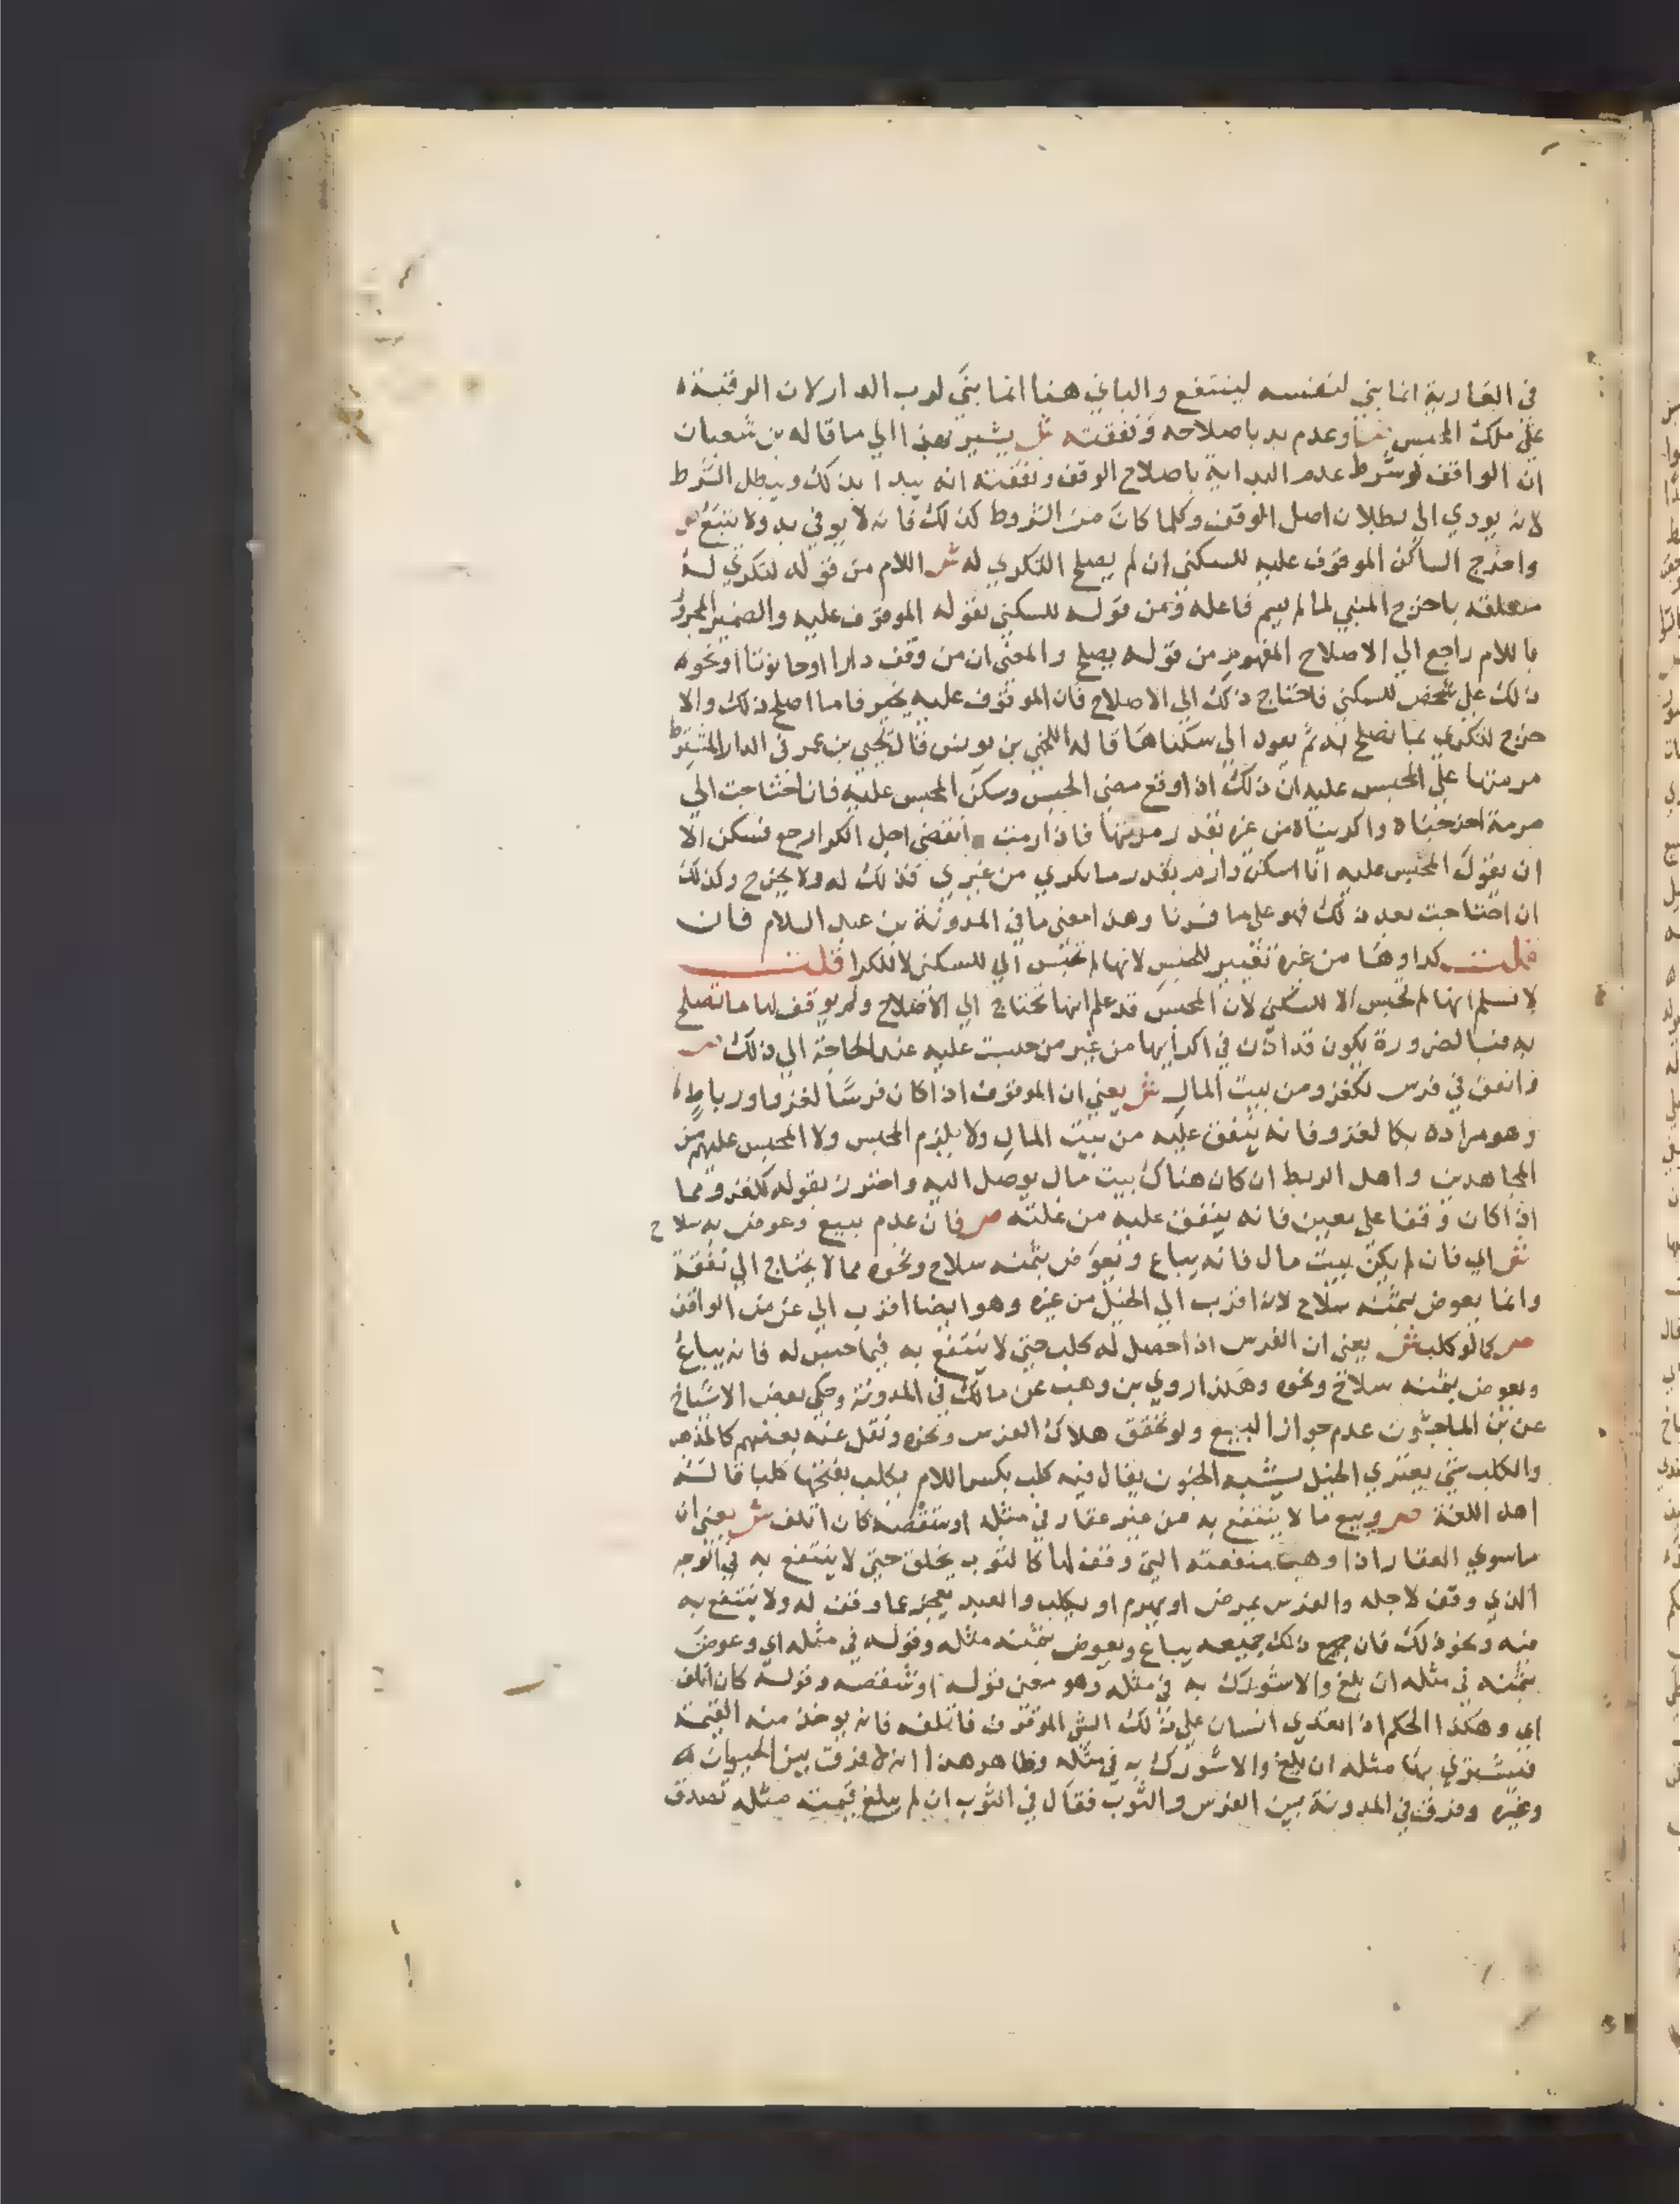 في العارية انما بني لنفسه لينتفع والباني هنا انما بني لرب الدار لان الرقبة
علي ملك المحبس ص وعدم بدء باصلاحه ونفقته ش يشير بهذا الي ما قاله بن شعبان
ان الواقف لو شرط عدم البداية باصلاح الوقف ونفقته انه يبدا بذلك ويبطل الشرط
لانه يودي الي بطلان اصل الوقف وكلما كان من الشروط كذلك فانه لا يوفي به ولا يتبع ص
واخرج الساكن الموقوف عليه للسكني ان لم يصلح لتكري له ش اللام من قوله لتكري له
متعلقة باخرج المبني لما لم يسم فاعله ومن قوله للسكني بقوله الموقوف عليه والضمير المجرور
باللام راجع الي الاصلاح المفهوم من قوله يصلح والمعني ان من وقف دارا او حانوتا او نحو
ذلك علي شخص للسكني فاحتاج ذلك الي الاصلاح فان الموقوف عليه يخير فاما اصلح ذلك والا
خرج لتكري بما تصلح به ثم يعود الي سكناها قاله اللخمي بن يونس قال يحيي بن عمر في الدار المشترط
مرمتها علي المحبس عليه ان ذلك اذا وقع مضي الحبس وسكن المحبس عليه فان احتاجت الي
مرمة اخرجناه واكريناه من غيره بقدر مرمتها فاذا رمت انقضي اجل الكرا رجع فسكن الا
ان يقول المحبس عليه انا اسكن وارم بقدر ما يكري من غيري فذلك له ولا يخرج وكذلك
ان احتاجت بعد ذلك فهو علي ما فسرنا وهذا معني ما في المدونة بن عبد السلام فان
قلت كراوها من غيره تغيير للحبس لانها لم تحبس الي للسكني لا للكرا قلت
لا نسلم انها لم تحبس الا للسكني لان المحبس قد علم انها تحتاج الي الاصلاح ولم يوقف لها ما تصلح
به فبالضرورة يكون قد اذن في اكرايها من غير من حبست عليه عند الحاجة الي ذلك ص
وانفق في فرس لكغزو من بيت المال ش يعني ان الموقوف اذا كان فرسا لغزو او رباط
وهو مراده بكالغزو فانه ينفق عليه من بيت المال ولا يلزم المحبس ولا المحبس عليهم من
المجاهدين واهل الربط ان كان هناك بيت مال يوصل اليه واحترز بقوله لكغزو مما
اذا كان وقفا علي معين فانه ينفق عليه من غلته ص فان عدم بيع وعوض به سلاح
ش اي فان لم يكن بيت مال فانه يباع ويعوض بثمنه سلاح ونحوه مما لا يحتاج الي نفقة
وانما يعوض بثمنه سلاح لانه اقرب الي الخيل من غيره وهو ايضا اقرب الي غرض الواقف
ص كما لو كلب ش يعني ان الفرس اذا حصل له كلب حتي لا ينتفع به فيما حبس له فانه يباع
ويعوض بثمنه سلاح ونحوه وهكذا روي بن وهب عن مالك في المدونة وحكي بعض الاشياخ
عن بن الماجشون عدم جواز البيع ولو تحقق هلاك الفرس ونحوه ونقل عنه بعضهم كالمذهب
والكلب شي يعتري الخيل يشبه الجنون يقال فيه كلب بكسر اللام يكلب بفتحها كلبا قاله
اهل اللغة ص وبيع ما لا ينتفع به من غير عقار في مثله او شقصه كان اتلف ش يعني ان
ما سوي العقار اذا ذهبت منفعته التي وقف لها كالثوب يخلق حتي لا ينتفع به في الوجه
الذي وقف لاجله والفرس يمرض او يهرم او يكلب والعبد يعجز عما وقف له ولا ينتفع به
فيه ونحو ذلك فان جميع ذلك جميعه يباع ويعوض بثمنه مثله وقوله في مثله اي وعوض
بثمنه في مثله ان بلغ والا شورك به في مثله وهو معني قوله او شقصه وقوله كان اتلف
اي وهكذا الحكم اذا تعدي انسان علي ذلك الشي الموقوف فاتلفه فانه يوخذ منه القيمة
فيشتري بها مثله ان بلغ والا شورك به في مثله وظاهر هذا انه لا فرق بين الحيوان
وغيره وفرق في المدونة بين الفرس والثوب فقال في الثوب ان لم يبلغ قيمته مثله تصدق